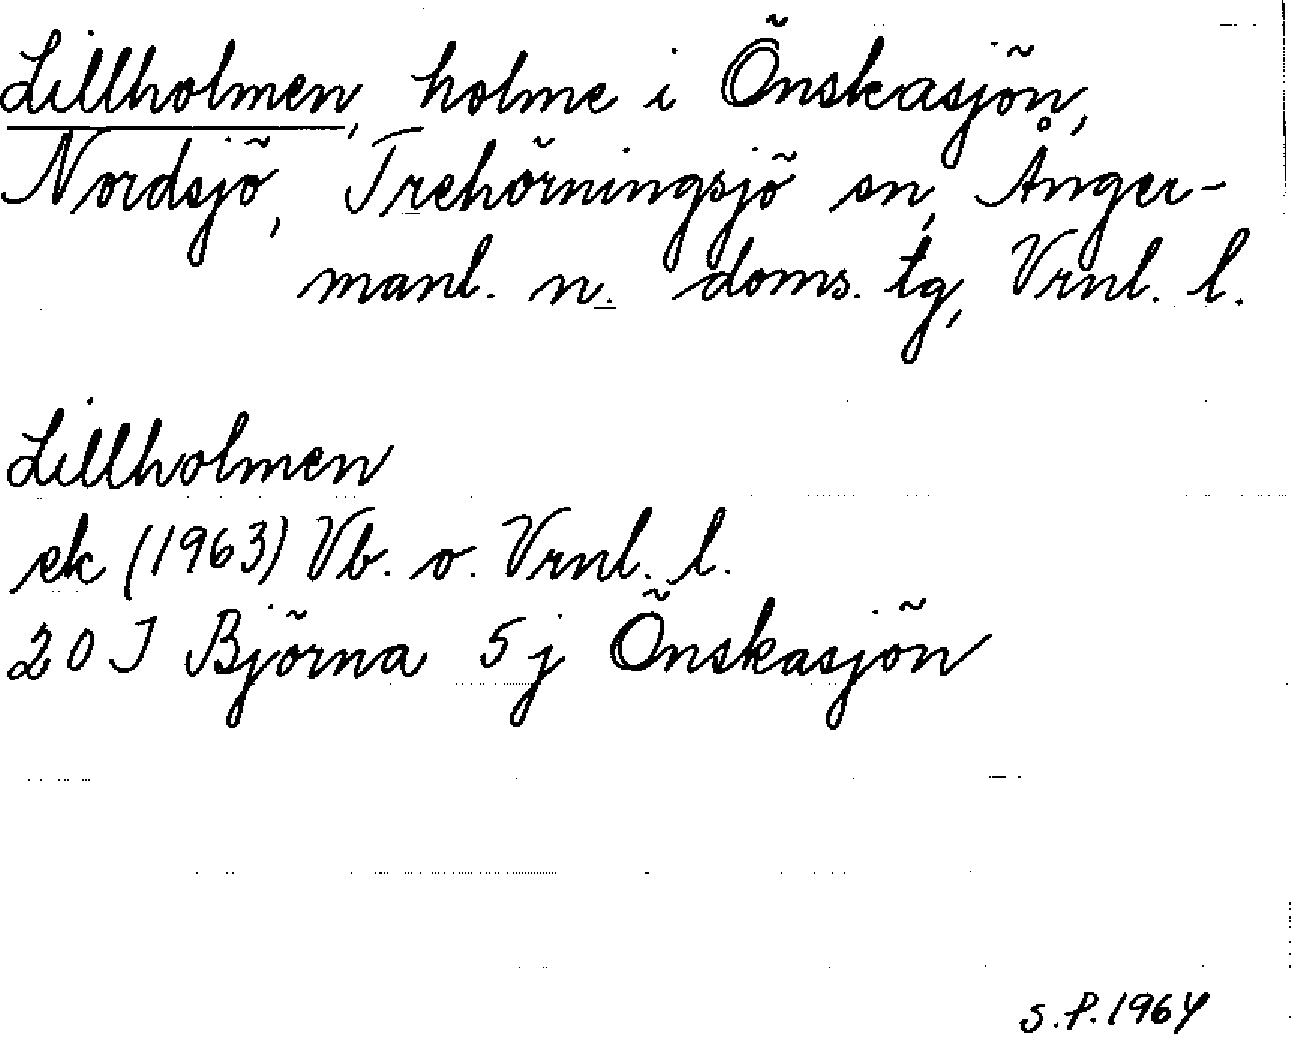 Lillholmen, holme i Önskasjön,
Nordsjö, Trehörningsjö sn, Ånger-
manl. n. doms. tg, Vrnl. l.
Lillholmen
ek (1963) Vb. o. Vrnl. l.
20 J Björna 5 j Önskasjön
S.P. 1964